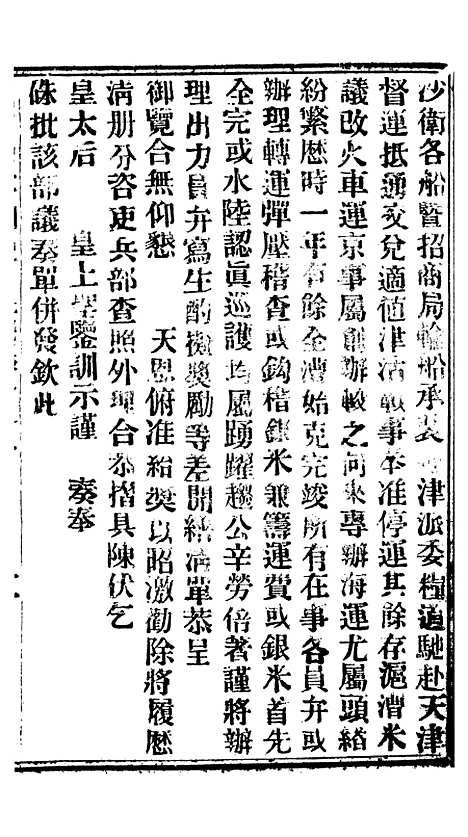 沙衛各船暨招商局輪船承裝津派委糧道馳赴天津
督運抵通交兌適値津沽戰事奉准停運其餘存滬漕米
議改火車運京事屬創辦較之向來專辦海運尤屬頭緖
紛繁歷時一年有餘全漕始克完竣所有在事各員弁或
辦理轉運彈壓稽查或鈎稽銀米兼籌運費或銀米首先
全完或水陸認眞巡護均屬踴躍趨公辛勞倍著謹將辦
理出力員弁寫生酌擬獎勵等差開繕淸單恭呈
御覽合無仰懇　天恩俯准給獎以昭激勸除將履歷
淸册分咨吏兵部查照外理合恭摺具陳伏乞
皇太后　皇上聖鑒訓示謹　奏奉
硃批該部議奏單併發欽此